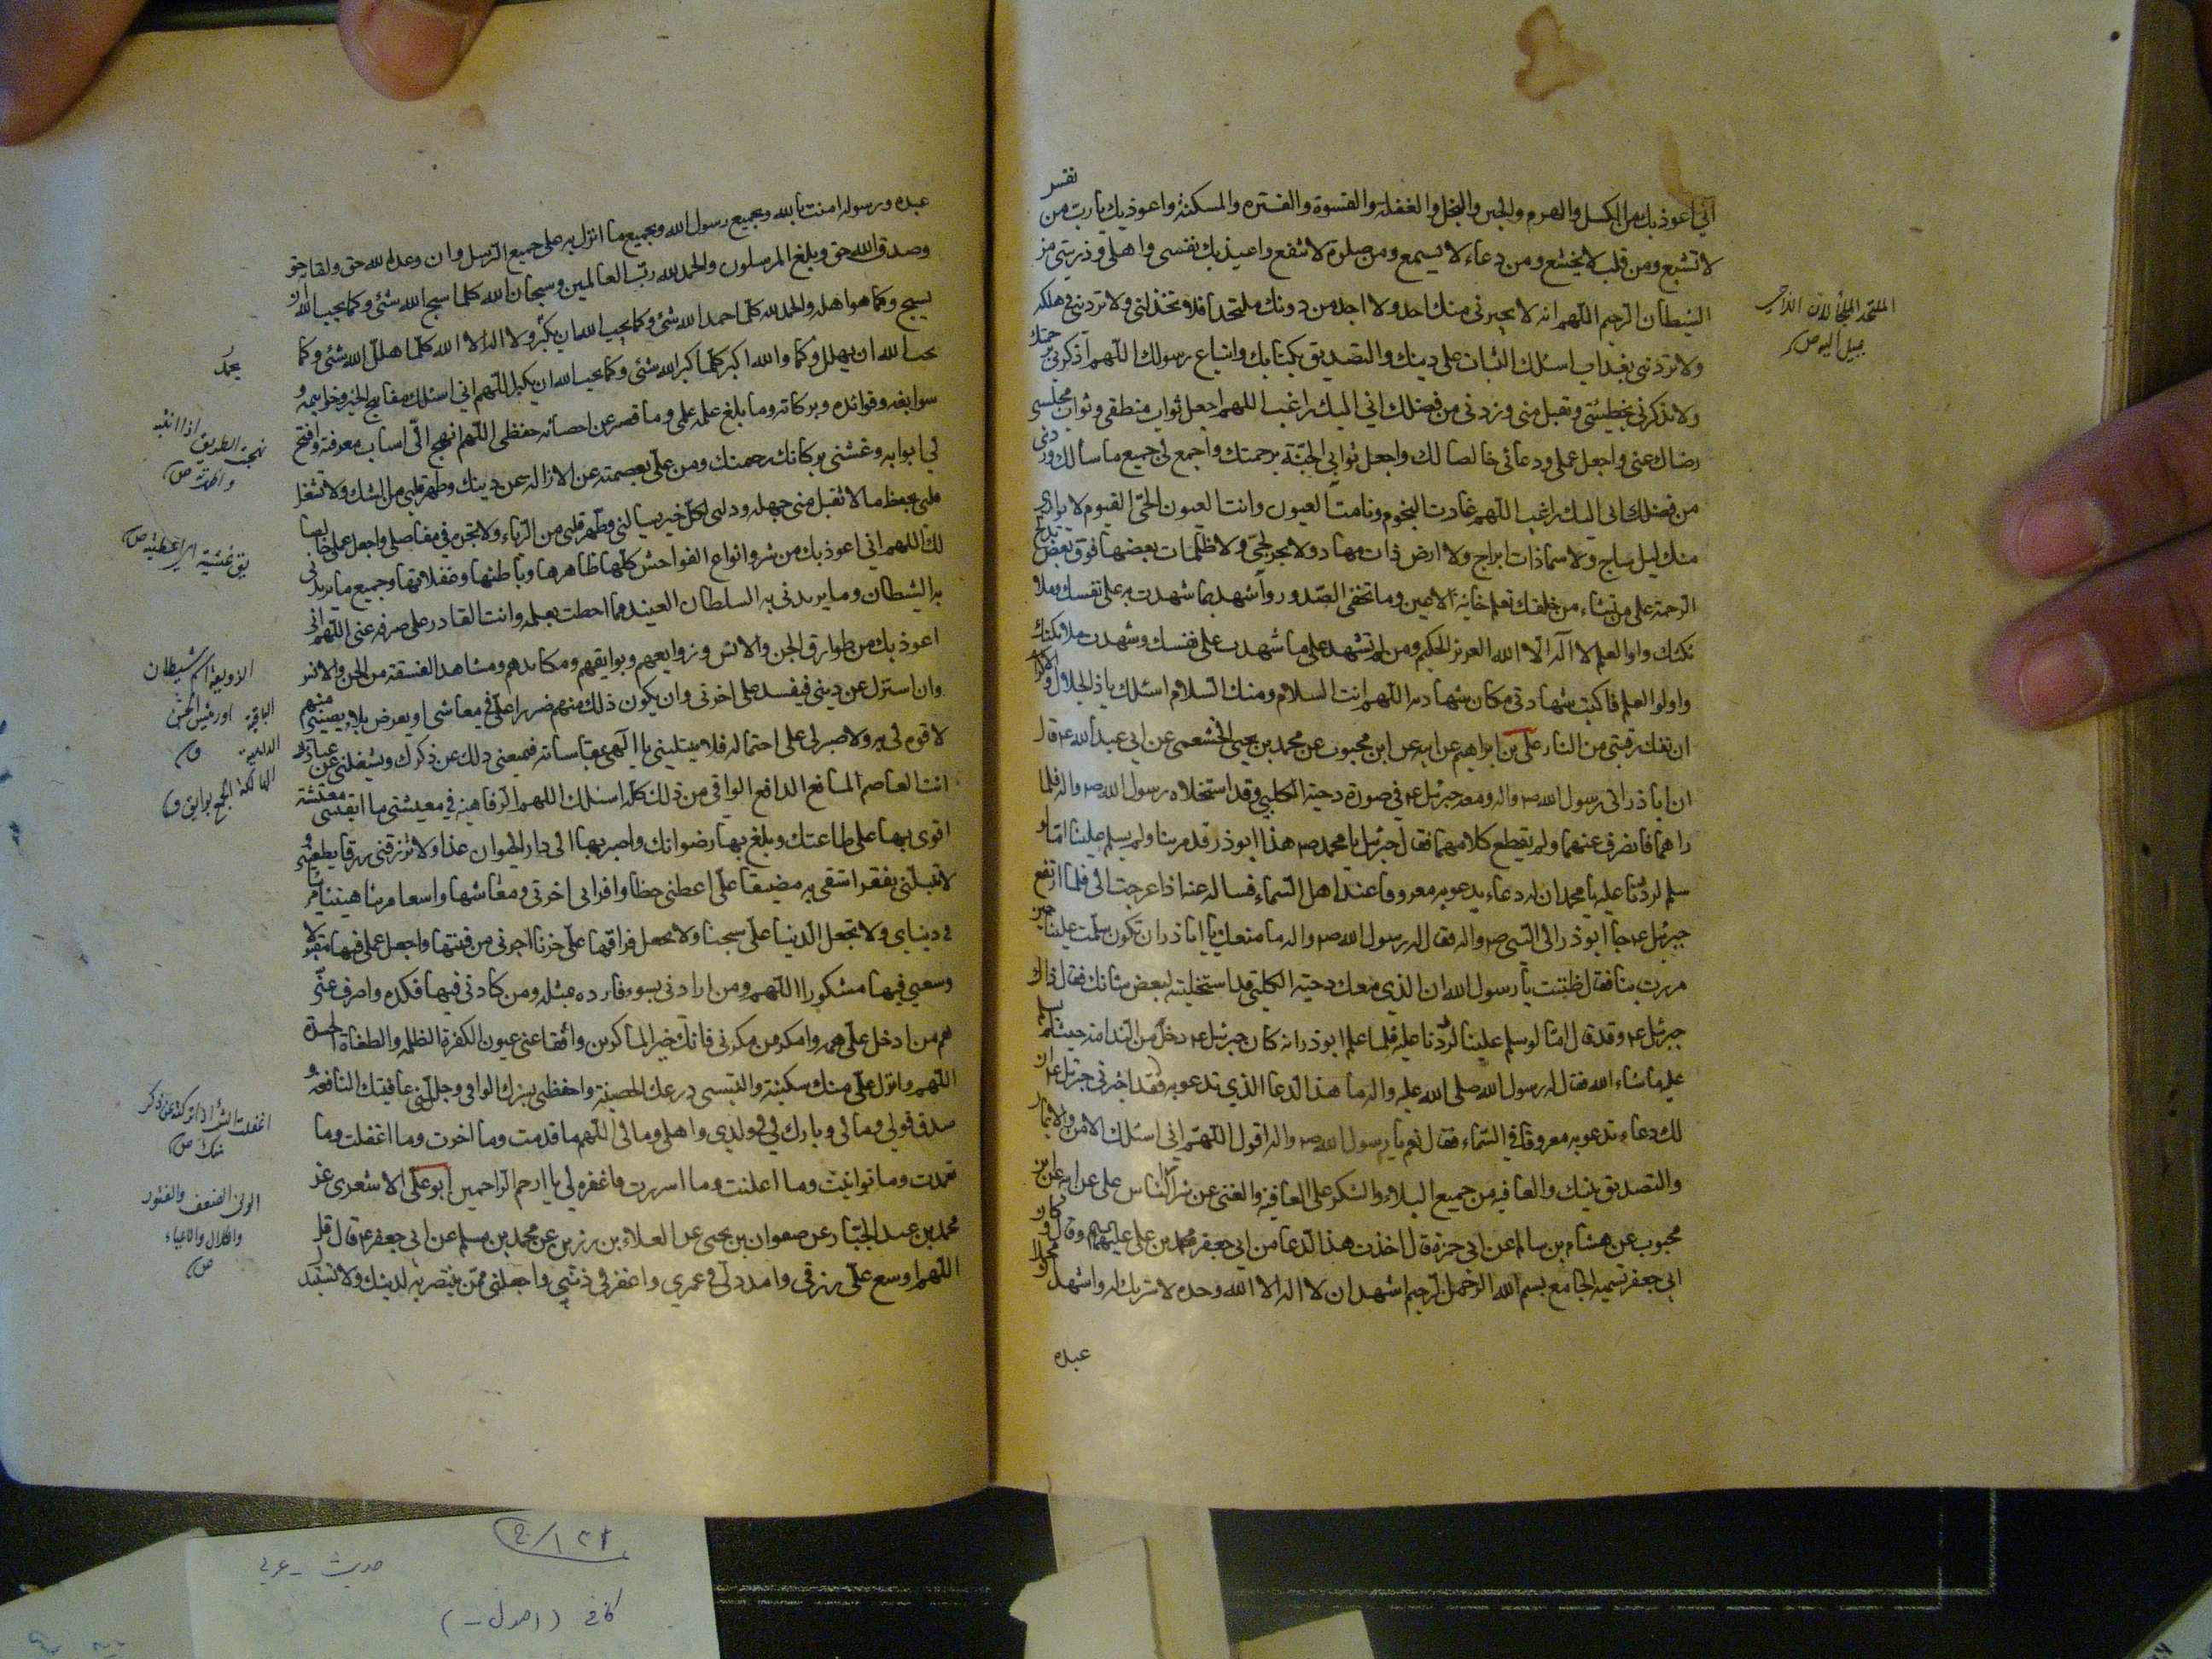 اني اعوذ بك من الكسل والهرم والجبن والبخل والغفلة والقسوة والفترة والمسكنة واعوذ بك يا رب من نفس
لا تشبع ومن قلب لا يخشع ومن دعاء لا يسمع ومن صلوة لا تنفع واعيذ بك نفسي واهلي وذريتي من
الشيطان الرجيم اللهم انه لا يجيرني منك احد ولا اجد من دونك ملتحدا فلا تخذلني ولا تردني في هلكه
ولا تردني بعذاب اسئلك الثبات على دينك والتصديق بكتابك واتباع رسولك اللهم اذكرني برحمتك
ولا تذكرني بخطيئتي وتقبل مني وزدني من فضلك اني اليك راغب اللهم اجعل ثواب منطقي وثواب مجلسي
رضاك عني واجعل عملي ودعائي خالصا لك واجعل ثوابي الجنة برحمتك واجمع لي جميع ما سألتك وزدني
من فضلك اني اليك راغب اللهم غارت النجوم ونامت العيون وانت العيون الحي القيوم لا يواري
منك ليل ساج ولا سماء ذات ابراج ولا ارض ذات مهاد ولا بحر لجي ولا ظلمات بعضها فوق بعض تدلج
الرحمة على من تشاء من خلقك تعلم خائنة الاعين وما تخفي الصدور واشهد بما شهدت به على نفسك وملا
ئكتك واولو العلم لا اله الا الله العزيز الحكيم ومن لم تشهد على ما شهدت على نفسك وشهدت ملائكتك
واولوا العلم فاكتب شهادتي مكان شهادته اللهم انت السلام ومنك السلام اسئلك يا ذا الجلال والاكرام
ان تفك رقبتي من النار علي بن ابراهيم عن ابيه عن ابن محبوب عن محمد بن يحيى الخثعمي عن ابي عبد الله ع قال
ان ابا ذر اتى رسول الله ص واله ومعه جبرئيل ع في صورة دحية الكلبي وقد استخلاه رسول الله ص واله فلما
راهما فانصرف عنهما ولم يقطع كلامهما فقال جبرئيل يا محمد ص هذا ابو ذر قد مر بنا ولم يسلم علينا اما لو
سلم لرددنا عليه يا محمد ان له دعاء يدعو به معروفا عند اهل السماء فساله عنه اذا عرجت الى فلما ارتفع
جبرئيل ع جا ابو ذر الى النبي ص واله فقال له رسول الله ص واله ما منعك يا ابا ذر ان تكون سلمت علينا حين
مررت بنا فقال ظننت يا رسول الله ان الذي معك دحية الكلبي قد استخليته لبعض شانك فقال ذاك
جبرئيل ع وقد قال اما لو سلم علينا لرددنا عليه فلما علم ابو ذر انه كان جبرئيل ع دخل من الندامة حيث لم يسلم
عليه ما شاء الله فقال له رسول الله صلى الله عليه واله ما هذا الدعا الذي تدعو به فقد اخبرني جبرئيل ع ان
لك دعاء تدعو به معروفا في السماء فقال نعم يا رسول الله ص واله اقول اللهم اني اسئلك الامن والايمان
والتصديق بنبيك والعافية من جميع البلاء والشكر على العافية والغنى عن شرار الناس علي عن ابيه عن ابن
محبوب عن هشام بن سالم عن ابي حمزة قال اخذت هذا الدعا من ابي جعفر محمد بن علي عليهما السلم وقال وكان
ابي جعفر تسميه الجامع بسم الله الرحمن الرحيم اشهد ان لا اله الا الله وحده لا شريك له واشهد ان محمدا
عبده
الملتحد الملجأ لان اللاجي
يميل اليه ص
عبده ورسوله امنت بالله وبجميع رسول الله وبجميع ما انزل به على جميع الرسل وان وعد الله حق ولقاءه حق
وصدق الله حق وبلغ المرسلون والحمد لله رب العالمين وسبحان الله كلما سبح الله شئ وكما يحب الله ان
يسبح وكما هو اهله والحمد لله كلما احمد الله شئ وكما يحب الله ان يكبر ولا اله الا الله كلما هلل الله شئ وكما
يحب الله ان يهلل وكما والله اكبر كلما كبر الله شئ وكما يحب الله ان يكبر اللهم اني اسئلك مفاتيح الخير وخواتيمه و
سوابغه وفوائده وبركاته وما بلغ علمه علمي وما قصر عن احصائه حفظي اللهم انهج الي اسباب معرفته وافتح
لي ابوابه وغشني بركاتك رحمتك ومن علي بعصمته عن الازالة عن دينك وطهر قلبي من الشك ولا تشغل
قلبي بحفظ ما لا تقبل مني جهله وذلل لكل خير لساني وطهر قلبي من الرياء ولا تجره في مفاصلي واجعل عملي خالصا
لك اللهم اني اعوذ بك من شر وانواع الفواحش كلها ظاهرها وباطنها وغفلاتها وجميع ما يريدني
به الشيطان وما يريدني به السلطان العنيد مما احطت بعلمه وانت القادر على صرفه عني اللهم اني
اعوذ بك من طوارق الجن والانس وزوابعهم وبوايقهم ومكايدهم ومشاهد الفسقة من الجن والانس
وان استزل عن ديني فيفسد علي اخرتي وان يكون ذلك منهم ضررا علي في معاشي او يعرض بلاء يصيبني منهم
لا قوة لي به ولا صبر لي على احتماله فلا تبتليني يا الهي بمقاساته فيمنعني ذلك عن ذكرك ويشغلني عن عبادتك
انت العاصم المانع الدافع الواقي من ذلك كله اسئلك اللهم الرفاهية في معيشتي ما ابقيتني معيشة
اقوى بها على طاعتك وبلغ بها رضوانك واصير بها الى دار الحيوان غدا ولا ترزقني رزقا يطغيني و
لا تبتلني بفقر اشقى به مضيقا علي اعطني حظا وافرا في اخرتي ومعاشها واسعا مريئا هنيئا
في دنياي ولا تجعل الدنيا علي سجنا ولا تجعل فراقها علي حزنا اجرني من فتنتها واجعل عملي فيها مقبولا
وسعيي فيها مشكورا اللهم ومن ارادني بسوء فارده بمثله ومن كادني فيها فكده واصرف عني
هم من ادخل علي همه وامكر من مكرني فانك خير الماكرين وافقا عني عيون الكفرة الظلمة والطغاة الحسدة
اللهم وانزل علي منك سكينة والبسني درعك الحصينة واحفظني بسترك الواقي وجللني عافيتك النافعة و
صدق قولي وفعالي وبارك لي في ولدي واهلي ومالي اللهم ما قدمت وما اخرت وما اغفلت وما
تعمدت وما توانيت وما اعلنت وما اسررت فاغفره لي يا ارحم الراحمين ابو علي الاشعري عن
محمد بن عبد الجبار عن صفوان بن يحيى عن العلاء بن رزين عن محمد بن مسلم عن ابي جعفر ع قال قل
اللهم اوسع علي رزقي وامدد لي في عمري واغفر لي ذنبي واجعلني ممن ينتصر به لدينك ولا تستبدل
يحمد
نهجت الطريق اذا ابنته
واوضحته ص
يق غشيته اي غطيته ص
الزوبعة اسم شيطان
او رئيس الجن
ق
اغفلت الشئ اذا تركته على ذكر
منك ص
الونى الضعف والفتور
والكلال والاعياء
ص
١٢١/ج
حديث - عربي
كافي (اصول -)